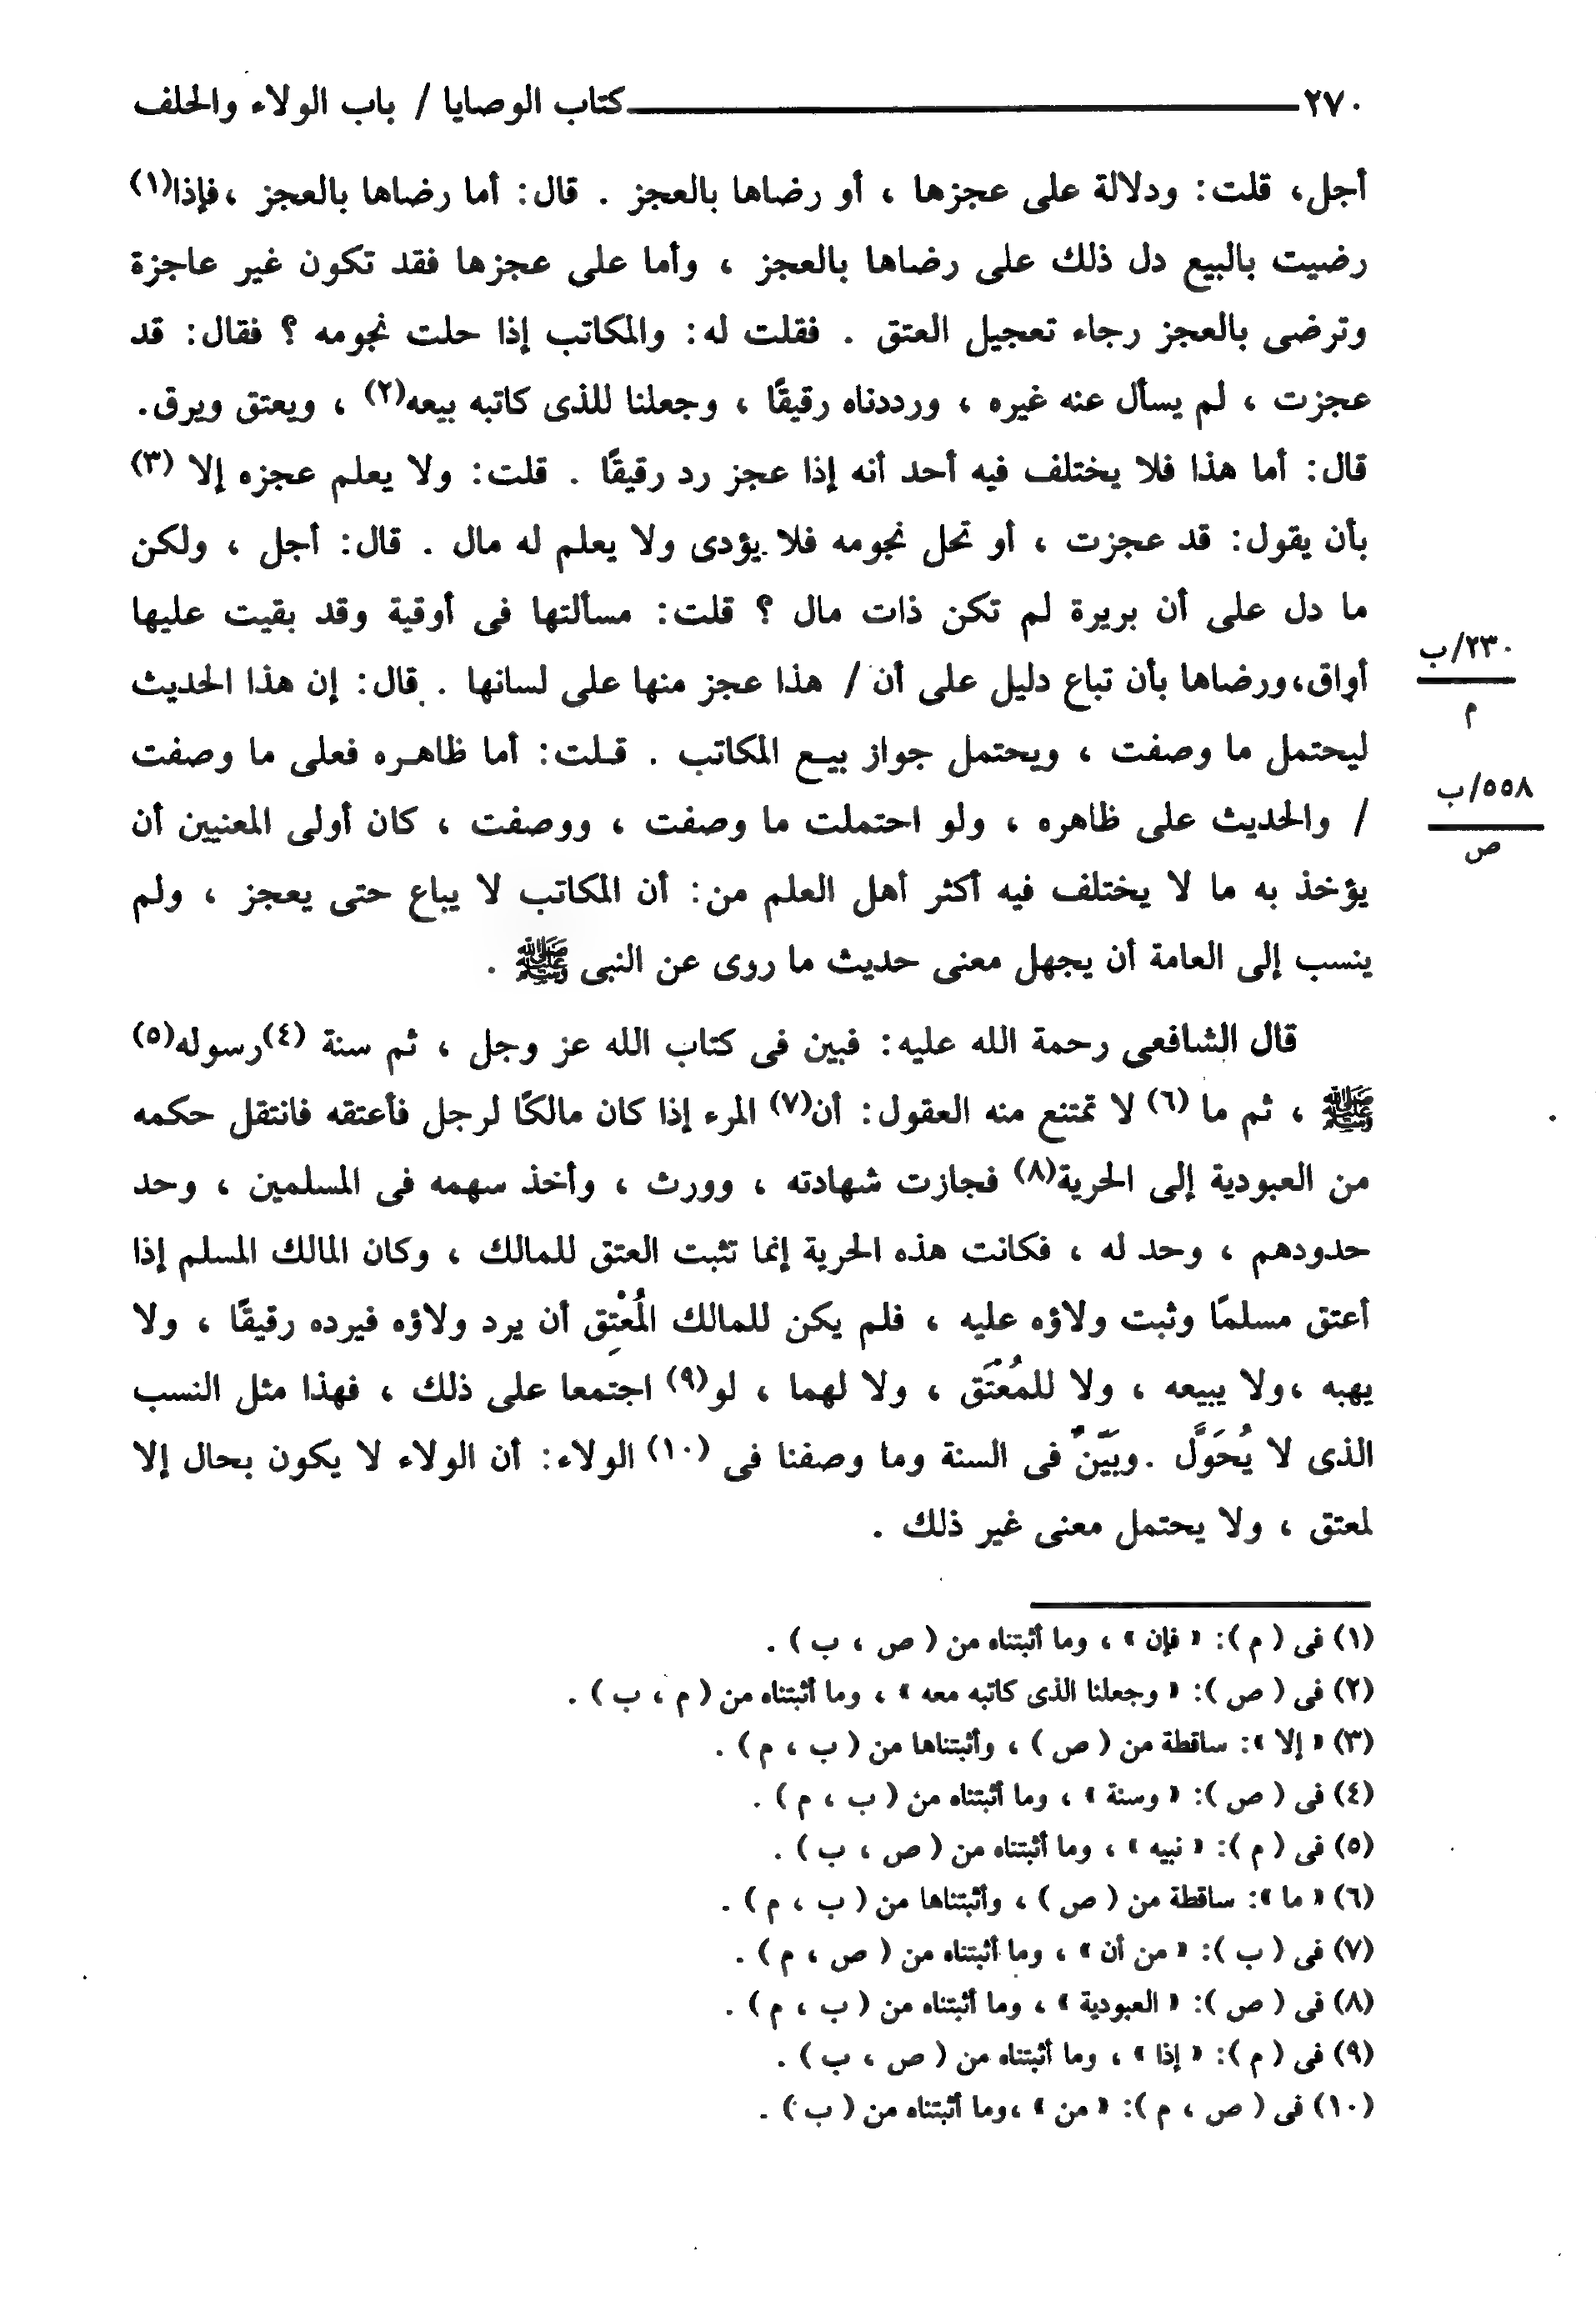 ٢٧٠ كتاب الوصايا / باب الولاء والحلف
أجل، قلت: ودلالة على عجزها ، أو رضاها بالعجز . قال: أما رضاها بالعجز ،فإذا(١)
رضيت بالبيع دل ذلك على رضاها بالعجز ، وأما على عجزها فقد تكون غير عاجزة
وترضى بالعجز رجاء تعجيل العتق . فقلت له: والمكاتب إذا حلت نجومه ؟ فقال: قد
عجزت ، لم يسأل عنه غيره ، ورددناه رقيقًا ، وجعلنا للذى كاتبه بيعه(٢) ، ويعتق ويرق.
قال: أما هذا فلا يختلف فيه أحد أنه إذا عجز رد رقيقًا . قلت: ولا يعلم عجزه إلا (٣)
بأن يقول: قد عجزت ، أو تحل نجومه فلا يؤدى ولا يعلم له مال . قال: أجل ، ولكن
ما دل على أن بريرة لم تكن ذات مال ؟ قلت: مسألتها فى أوقية وقد بقيت عليها
٢٣٠/ب
م
أواق،ورضاها بأن تباع دليل على أن / هذا عجز منها على لسانها . قال: إن هذا الحديث
ليحتمل ما وصفت ، ويحتمل جواز بيع المكاتب . قلت: أما ظاهره فعلى ما وصفت
٥٥٨/ب
ص
/ والحديث على ظاهره ، ولو احتملت ما وصفت ، ووصفت ، كان أولى المعنيين أن
يؤخذ به ما لا يختلف فيه أكثر أهل العلم من: أن المكاتب لا يباع حتى يعجز ، ولم
ينسب إلى العامة أن يجهل معنى حديث ما روى عن النبى ﷺ .
قال الشافعى رحمة الله عليه: فبين فى كتاب الله عز وجل ، ثم سنة (٤)رسوله(٥)
ﷺ ، ثم ما (٦) لا تمتنع منه العقول: أن(٧) المرء إذا كان مالكًا لرجل فأعتقه فانتقل حكمه
من العبودية إلى الحرية(٨) فجازت شهادته ، وورث ، وأخذ سهمه فى المسلمين ، وحد
حدودهم ، وحد له ، فكانت هذه الحرية إنما تثبت العتق للمالك ، وكان المالك المسلم إذا
أعتق مسلمًا وثبت ولاؤه عليه ، فلم يكن للمالك المُعْتِق أن يرد ولاؤه فيرده رقيقًا ، ولا
يهبه ،ولا يبيعه ، ولا للمُعْتَق ، ولا لهما ، لو(٩) اجتمعا على ذلك ، فهذا مثل النسب
الذى لا يُحَوَّل .وبَيِّنٌ فى السنة وما وصفنا فى (١٠) الولاء: أن الولاء لا يكون بحال إلا
لمعتق ، ولا يحتمل معنى غير ذلك .
(١) فى ( م ): « فإن » ، وما أثبتناه من ( ص ، ب ) .
(٢) فى ( ص ): « وجعلنا الذى كاتبه معه » ، وما أثبتناه من ( م ، ب ) .
(٣) « إلا »: ساقطة من ( ص ) ، وأثبتناها من ( ب ، م ) .
(٤) فى ( ص ): « وسنة » ، وما أثبتناه من ( ب ، م ) .
(٥) فى ( م ): « نبيه » ، وما أثبتناه من ( ص ، ب ) .
(٦) « ما »: ساقطة من ( ص ) ، وأثبتناها من ( ب ، م ) .
(٧) فى ( ب ): « من أن » ، وما أثبتناه من ( ص ، م ) .
(٨) فى ( ص ): « العبودية » ، وما أثبتناه من ( ب ، م ) .
(٩) فى ( م ): « إذا » ، وما أثبتناه من ( ص ، ب ) .
(١٠) فى ( ص ، م ): « من » ،وما أثبتناه من ( ب ) .